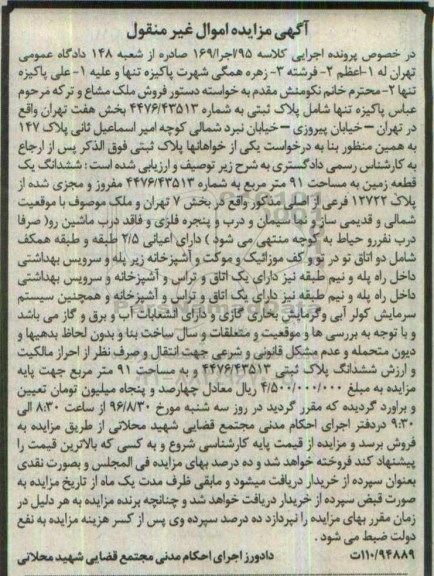 آگهی مزایده اموال غیر منقول
در خصوص پرونده اجرایی کلاسه ۹۵/اجرا/۱۶۹ صادره از شعبه ۱۴۸ دادگاه عمومی
تهران له ۱-اعظم ۲- فرشته ۳- زهره همگی شهرت پاکیزه تنها و علیه ۱-علی پاکیزه
تنها ۲- محترم خانم نکومنش مقدم به خواسته دستور فروش ملک مشاع و ترکه مرحوم
عباس پاکیزه تنها شامل پلاک ثبتی به شماره ۴۴۷۶/۴۳۵۱۳ بخش هفت تهران واقع
در تهران – خیابان پیروزی – خیابان نبرد شمالی کوچه امیر اسماعیل ثانی پلاک ۱۴۷
به همین منظور بنا به درخواست یکی از خواهانها پلاک ثبتی فوق الذکر پس از ارجاع
به کارشناس رسمی دادگستری به شرح زیر توصیف و ارزیابی شده است : ششدانگ یک
قطعه زمین به مساحت ۹۱ متر مربع به شماره ۴۴۷۶/۴۳۵۱۳ مفروز و مجزی شده از
پلاک ۱۲۷۲۲ فرعی از اصلی مذکور واقع در بخش ۷ تهران و ملک موصوف با موقعیت
شمالی و قدیمی ساز و نما سیمان و درب و پنجره فلزی و فاقد درب ماشین رو( صرفا
درب نفررو حیاط به کوچه منتهی می شود ) دارای اعیانی ۲/۵ طبقه و طبقه همکف
شامل دو اتاق تو در تو و کف موزائیک و موکت و آشپزخانه زیر پله و سرویس بهداشتی
داخل راه پله و نیم طبقه نیز دارای یک اتاق و تراس و آشپزخانه و سرویس بهداشتی
داخل راه پله و نیم طبقه نیز دارای یک اتاق و تراس و آشپزخانه و همچنین سیستم
سرمایش کولر آبی و گرمایش بخاری گازی و دارای انشعابات آب و برق و گاز می باشد
و با توجه به بررسی ها و موقعیت و متعلقات و سال ساخت بنا و بدون لحاظ بدهیها و
دیون متحمله و عدم مشکل قانونی و شرعی جهت انتقال و صرف نظر از احراز مالکیت
و ارزش ششدانگ پلاک ثبتی ۴۴۷۶/۴۳۵۱۳ و به مساحت ۹۱ متر مربع جهت پایه
مزایده به مبلغ ۴/۵۰۰/۰۰۰/۰۰۰ ریال معادل چهارصد و پنجاه میلیون تومان تعیین
و براورد گردیده که مقرر گردید در روز سه شنبه مورخ ۹۶/۸/۳۰ از ساعت ۸:۳۰ الی
۹:۳۰ دردفتر اجرای احکام مدنی مجتمع قضایی شهید محلاتی از طریق مزایده به
فروش برسد و مزایده از قیمت پایه کارشناسی شروع و به کسی که بالاترین قیمت را
پیشنهاد کند فروخته خواهد شد و ده درصد بهای مزایده فی المجلس و بصورت نقدی
بعنوان سپرده از خریدار دریافت میشود و مابقی ظرف مدت یک ماه از تاریخ مزایده به
صورت قبض سپرده از خریدار دریافت خواهد شد و چنانچه برنده مزایده به هر دلیل در
زمان مقرر بهای مزایده را نپردازد ده درصد سپرده وی پس از کسر هزینه مزایده به نفع
دولت ضبط می شود .
۱۱۰/۹۴۸۸۹ت دادورز اجرای احکام مدنی مجتمع قضایی شهید محلاتی